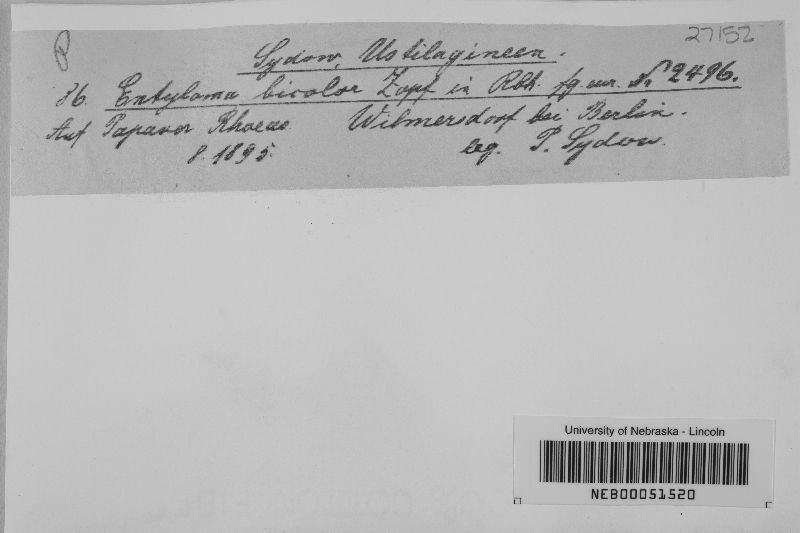 27152
Sydow, Ustilagineen.
36. Entyloma bicolor Zopf in Rbh. fg. eur. Nr 2496.
Auf Papaver Rhoeas Wilmersdorf bei Berlin.
8. 1895. leg. P. Sydow.
University of Nebraska - Lincoln
NEB00051520